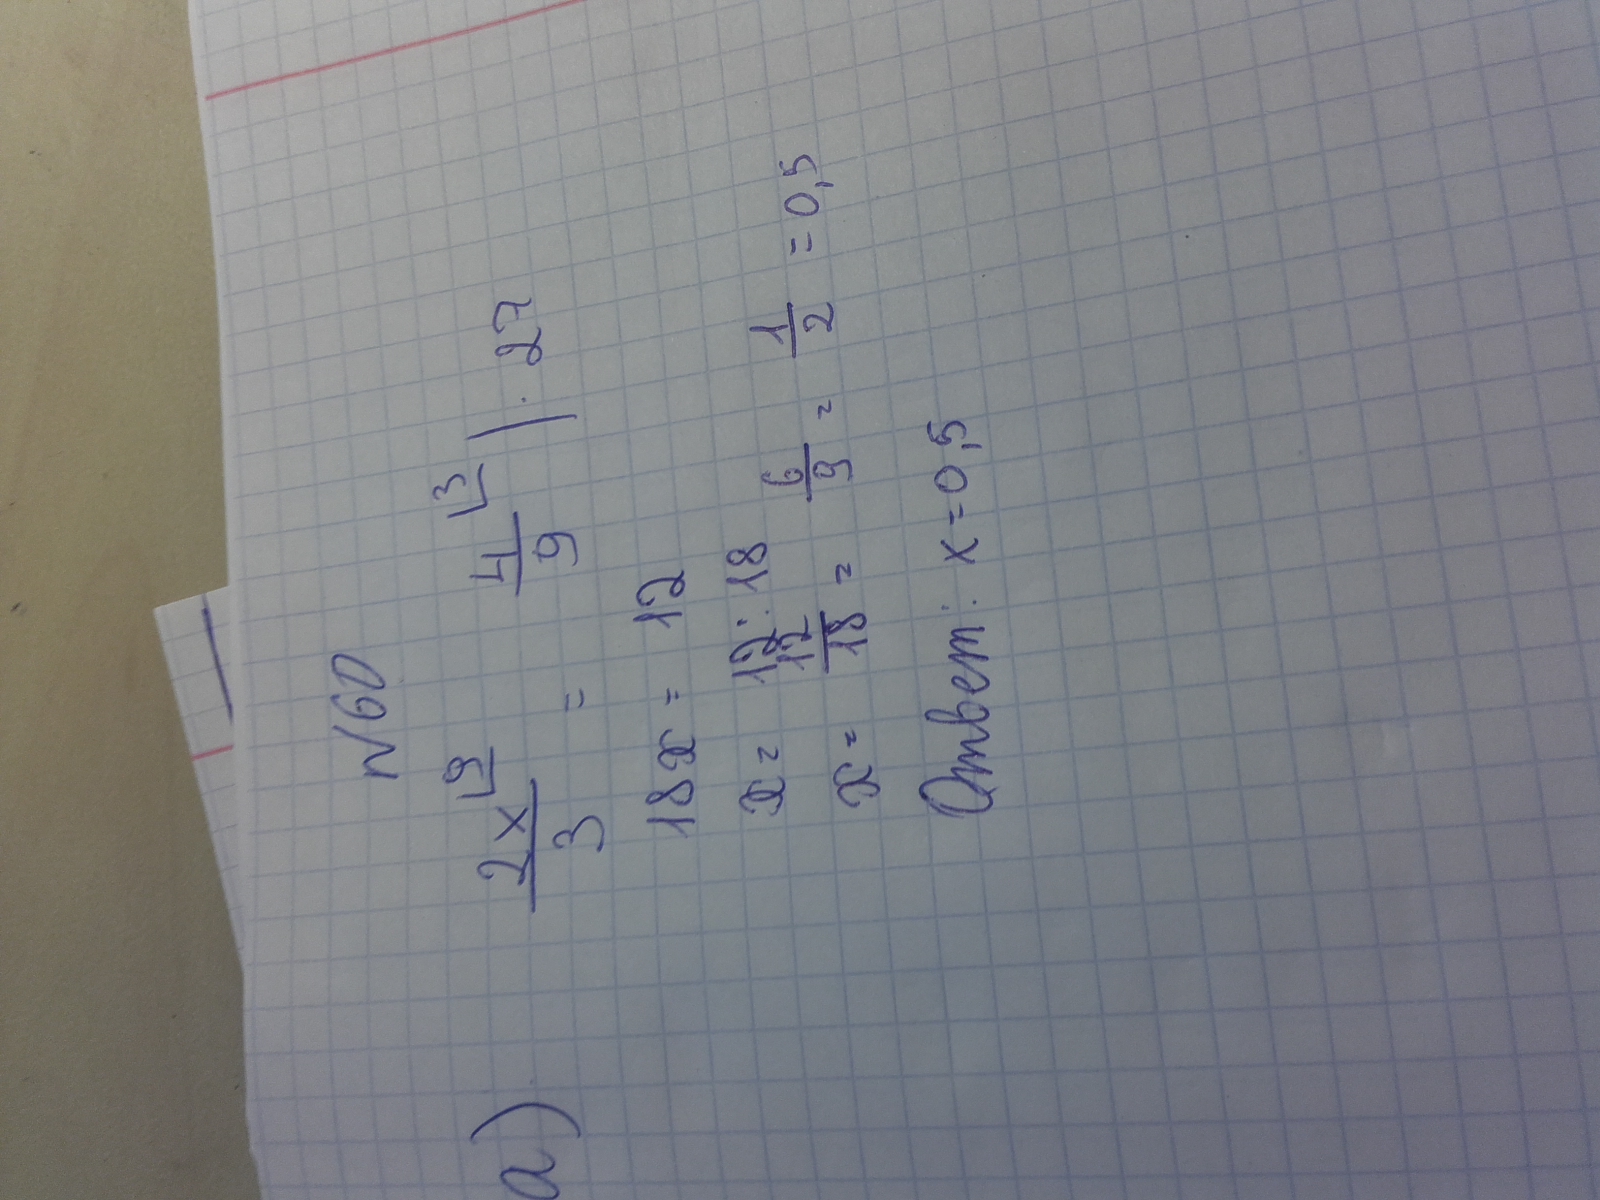 N60
а) 2x/3 ⌊9 = 4/9 ⌊3 | · 27
18x = 12
x = 12 : 18
x = 12/18 = 6/9 = 1/2 = 0,5
Ответ: x = 0,5